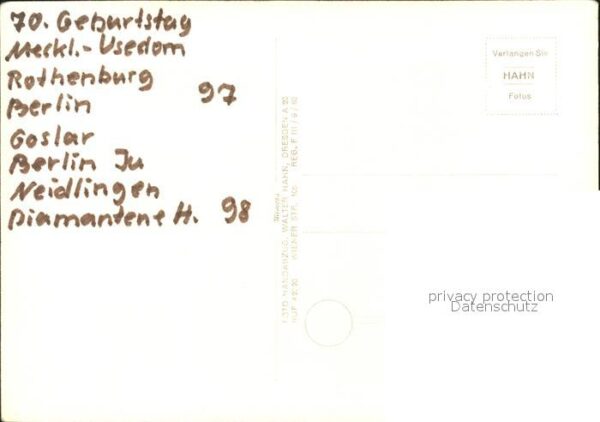 70. Geburtstag
Meckl.-Usedom
Rothenburg
Berlin 97
Goslar
Berlin Ju
Neidlingen
Diamantene H. 98
Verlangen Sie
HAHN
Fotos
HANDABZUG, WALTER HAHN, DRESDEN A 20
RUF 42 20
STR.
REG. F III / 9 /
privacy protection
Datenschutz